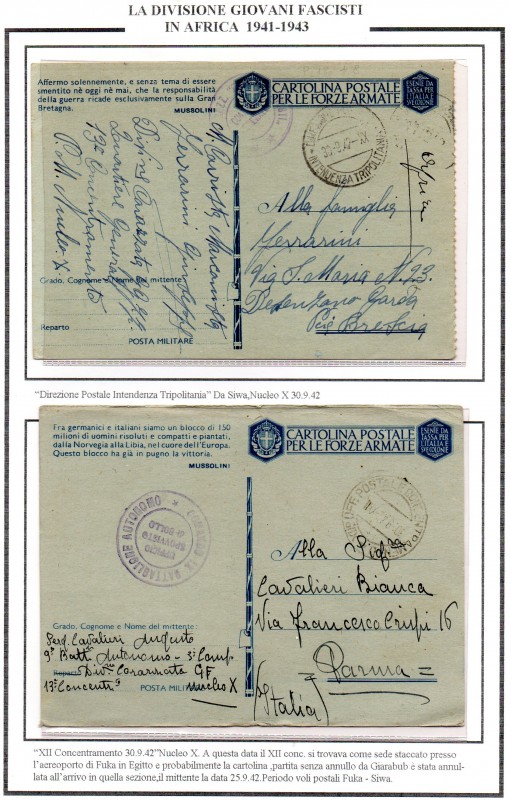 LA DIVISIONE GIOVANI FASCISTI
IN AFRICA 1941-1943
Affermo solennemente, e senza tema di essere
smentito nè oggi nè mai, che la responsabilità
della guerra ricade esclusivamente sulla Gran
Bretagna.
MUSSOLINI
CARTOLINA POSTALE
PER LE FORZE ARMATE
ESENTE DA
TASSA PER
L'ITALIA E
SVE COLONIE
30·9·42·XX
INTENDENZA TRIPOLITANIA
Ferrarini
Quartier Generale
13º Concentramento
P. M. Nucleo X
Alla famiglia
Ferrarini
Via S. Maria N. 23
Desenzano Garda
Brescia
Grado, Cognome e Nome del mittente
Reparto
POSTA MILITARE
"Direzione Postale Intendenza Tripolitania" Da Siwa,Nucleo X 30.9.42
Fra germanici e italiani siamo un blocco di 150
milioni di uomini risoluti e compatti e piantati,
dalla Norvegia alla Libia, nel cuore dell'Europa.
Questo blocco ha già in pugno la vittoria.
MUSSOLINI
CARTOLINA POSTALE
PER LE FORZE ARMATE
ESENTE DA
TASSA PER
L'ITALIA E
SVE COLONIE
BATTAGLIONE AUTONOMO
UFFICIO
SPROVVISTO
DI BOLLO
Alla Sig.ra
Cavalieri Bianca
Via Francesco Crispi 16
= Parma =
(Italia)
Grado, Cognome e Nome del mittente:
Serg. Cavalieri Augusto
9º Batt. Autonomo - 3ª Comp.
Reparto Div. Corazzata GF
13º Concent.
POSTA MILITARE Nucleo X
"XII Concentramento 30.9.42"Nucleo X. A questa data il XII conc. si trovava come sede staccato presso
l'aereoporto di Fuka in Egitto e probabilmente la cartolina ,partita senza annullo da Giarabub è stata annul-
lata all'arrivo in quella sezione,il mittente la data 25.9.42.Periodo voli postali Fuka - Siwa.